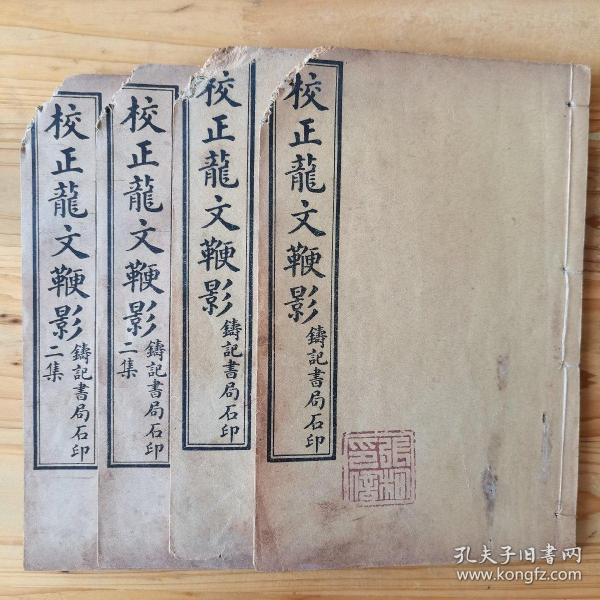 校正龍文鞭影二集
鑄記書局石印
校正龍文鞭影二集
鑄記書局石印
校正龍文鞭影
鑄記書局石印
校正龍文鞭影
鑄記書局石印
孔夫子旧书网
www.kongfz.com